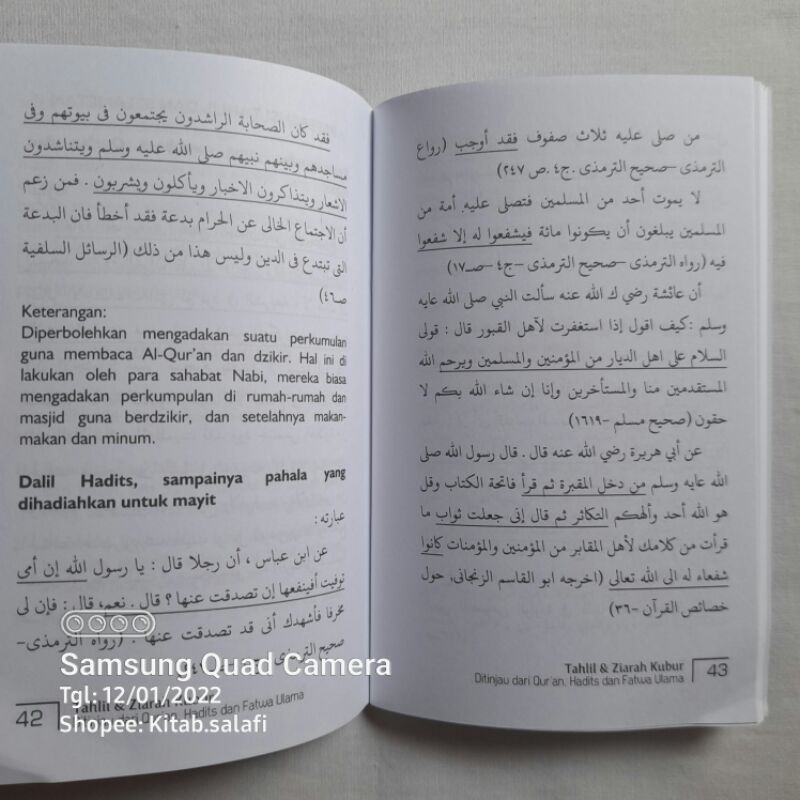 فقد كان الصحابة الراشدون يجتمعون فى بيوتهم وفى
مساجدهم وبينهم نبيهم صلى الله عليه وسلم ويتناشدون
الاشعار ويتذاكرون الاخبار ويأكلون ويشربون . فمن زعم
أن الاجتماع الخالى عن الحرام بدعة فقد أخطأ فان البدعة
التى تبتدع فى الدين وليس هذا من ذلك (الرسائل السلفية
صـ٤٦)
Keterangan:
Diperbolehkan mengadakan suatu perkumulan
guna membaca Al-Qur'an dan dzikir. Hal ini di
lakukan oleh para sahabat Nabi, mereka biasa
mengadakan perkumpulan di rumah-rumah dan
masjid guna berdzikir, dan setelahnya makan-
makan dan minum.
Dalil Hadits, sampainya pahala yang
dihadiahkan untuk mayit
عبارته :
عن ابن عباس ، أن رجلا قال : يا رسول الله إن أمى
توفيت أفينفعها إن تصدقت عنها ؟ قال . نعم، قال : فإن لى
مخرفا فأشهدك أنى قد تصدقت عنها . (رواه الترمذى-
صحيح الترمذى
Samsung Quad Camera
Tgl: 12/01/2022
Shopee: Kitab.salafi
42
Tahlil & Ziarah Kubur
dari Qur'an, Hadits dan Fatwa Ulama
من صلى عليه ثلاث صفوف فقد أوجب (رواع
الترمذى –صحيح الترمذى .جـ٤ .ص ٢٤٧)
لا يموت أحد من المسلمين فتصلى عليه أمة من
المسلمين يبلغون أن يكونوا مائة فيشفعوا له إلا شفعوا
فيه (رواه الترمذى –صحيح الترمذى –جـ٤ –صـ١٧)
أن عائشة رضي ك الله عنه سألت النبي صلى الله عايه
وسلم :كيف اقول إذا استغفرت لآهل القبور قال : قولى
السلام على اهل الديار من المؤمنين والمسلمين ويرحم الله
المستقدمين منا والمستأخرين وإنا إن شاء الله بكم لا
حقون (صحيح مسلم –١٦١٩)
عن أبي هريرة رضي الله عنه قال . قال رسول الله صلى
الله عايه وسلم من دخل المقبرة ثم قرأ فاتحة الكتاب وقل
هو الله أحد وألهكم التكاثر ثم قال إنى جعلت ثواب ما
قرأت من كلامك لأهل المقابر من المؤمنين والمؤمنات كانوا
شفعاء له الى الله تعالى (اخرجه ابو القاسم الزنجانى، حول
خصائص القرآن –٣٦)
Tahlil & Ziarah Kubur
Ditinjau dari Qur'an, Hadits dan Fatwa Ulama
43